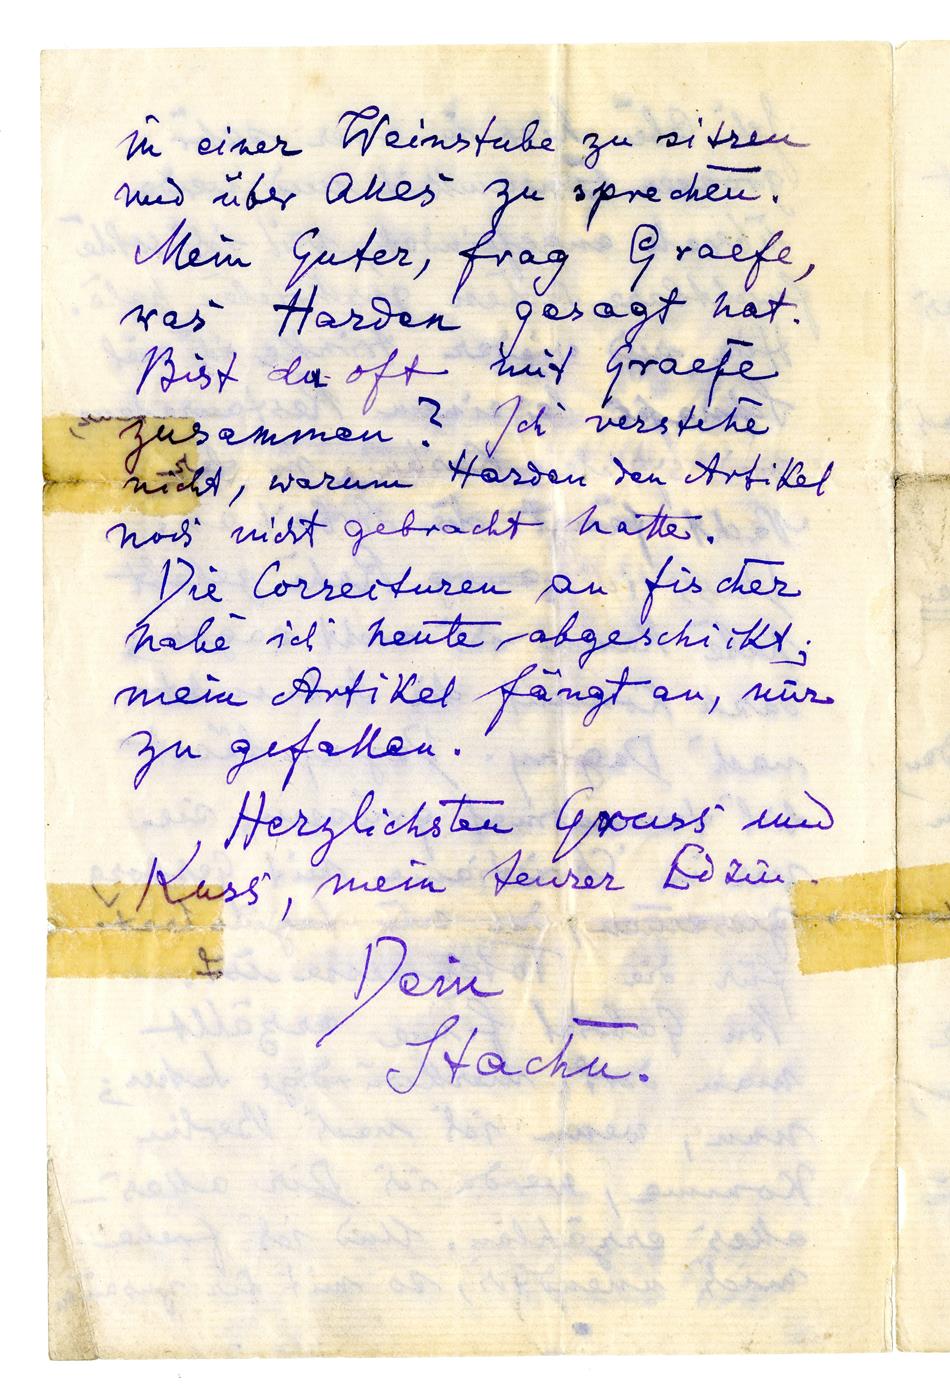 in einer Weinstube zu sitzen
und über Alles zu sprechen.
Mein Guter, frag Graefe,
was Harden gesagt hat.
Bist du oft mit Graefe
zusammen? Ich verstehe
nicht, warum Harden den Artikel
noch nicht gebracht hatte.
Die Correcturen an Fischer
habe ich heute abgeschickt;
mein Artikel fängt an, mir
zu gefallen.
Herzlichsten Gruss und
Kuss, mein teurer
Dein
Stachu.